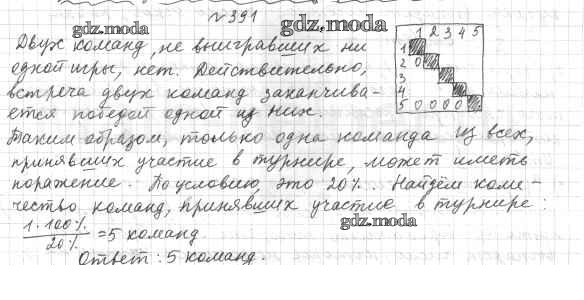 №391
gdz.moda
gdz.moda
Двух команд, не выигравших ни
одной игры, нет. Действительно,
встреча двух команд заканчива-
ется победой одной из них.
1 2 3 4 5
1
2 0
3
4
5 0 0 0 0
Таким образом, только одна команда из всех,
принявших участие в турнире, может иметь
поражение. По условию, это 20%. Найдём коли-
чество команд, принявших участие в турнире:
gdz.moda
1·100%
20%
=5 команд.
Ответ: 5 команд.